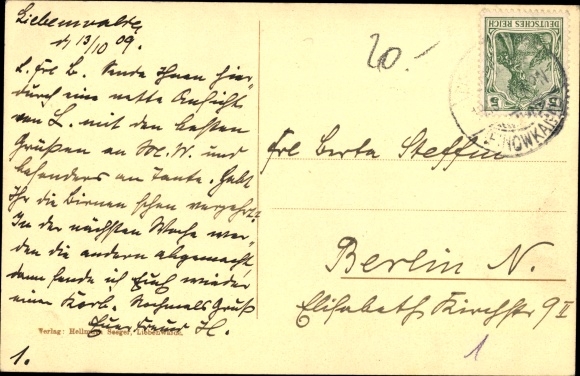 Liebenwalde,
d. 13/10 09.
L. Frl. B. Sende Ihnen hier-
durch eine nette Ansicht
von L. mit den besten
Grüßen an M. W. und
besonders an Tante. Habt
Ihr die Birnen schon verzehrt?
In der nächsten Woche wer-
den die andern abgemacht
dann sende ich Euch wieder
einen Korb. Nochmals Gruß
Euer treuer H.
Verlag: Hellmuth Seeger, Liebenwalde.
1.
20.-
DEUTSCHES REICH
5 5
FINOWKA
Frl. Berta Steffin
Berlin N.
Elisabeth Kirchstr. 9 II
1